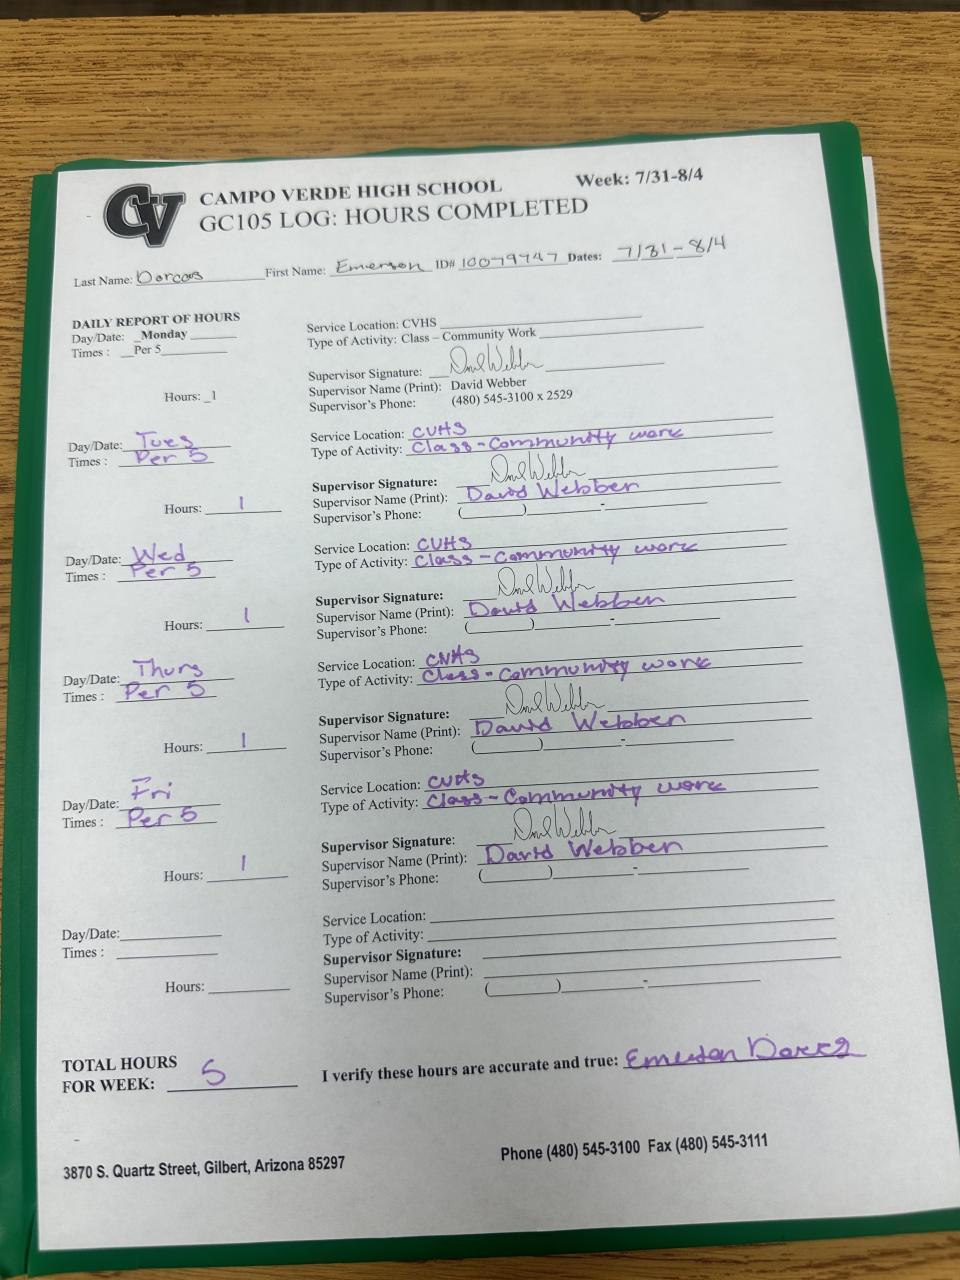 CV
CAMPO VERDE HIGH SCHOOL Week: 7/31-8/4
GC105 LOG: HOURS COMPLETED
Last Name: Dorcas First Name: Emerson ID# 10079747 Dates: 7/31-8/4
DAILY REPORT OF HOURS
Day/Date: Monday
Times : Per 5
Hours: 1
Service Location: CVHS
Type of Activity: Class – Community Work
Supervisor Signature: David Webber
Supervisor Name (Print): David Webber
Supervisor's Phone: (480) 545-3100 x 2529
Day/Date: Tues
Times : Per 5
Hours: 1
Service Location: CVHS
Type of Activity: Class - Community work
Supervisor Signature: David Webber
Supervisor Name (Print): David Webber
Supervisor's Phone: ( ) -
Day/Date: Wed
Times : Per 5
Hours: 1
Service Location: CVHS
Type of Activity: Class - Community work
Supervisor Signature: David Webber
Supervisor Name (Print): David Webber
Supervisor's Phone: ( ) -
Day/Date: Thurs
Times : Per 5
Hours: 1
Service Location: CVHS
Type of Activity: Class - Community work
Supervisor Signature: David Webber
Supervisor Name (Print): David Webber
Supervisor's Phone: ( ) -
Day/Date: Fri
Times : Per 5
Hours: 1
Service Location: CVHS
Type of Activity: Class - Community work
Supervisor Signature: David Webber
Supervisor Name (Print): David Webber
Supervisor's Phone: ( ) -
Day/Date:
Times :
Hours:
Service Location:
Type of Activity:
Supervisor Signature:
Supervisor Name (Print):
Supervisor's Phone: ( ) -
TOTAL HOURS
FOR WEEK: 5
I verify these hours are accurate and true: Emerson Dorcas
3870 S. Quartz Street, Gilbert, Arizona 85297
Phone (480) 545-3100 Fax (480) 545-3111